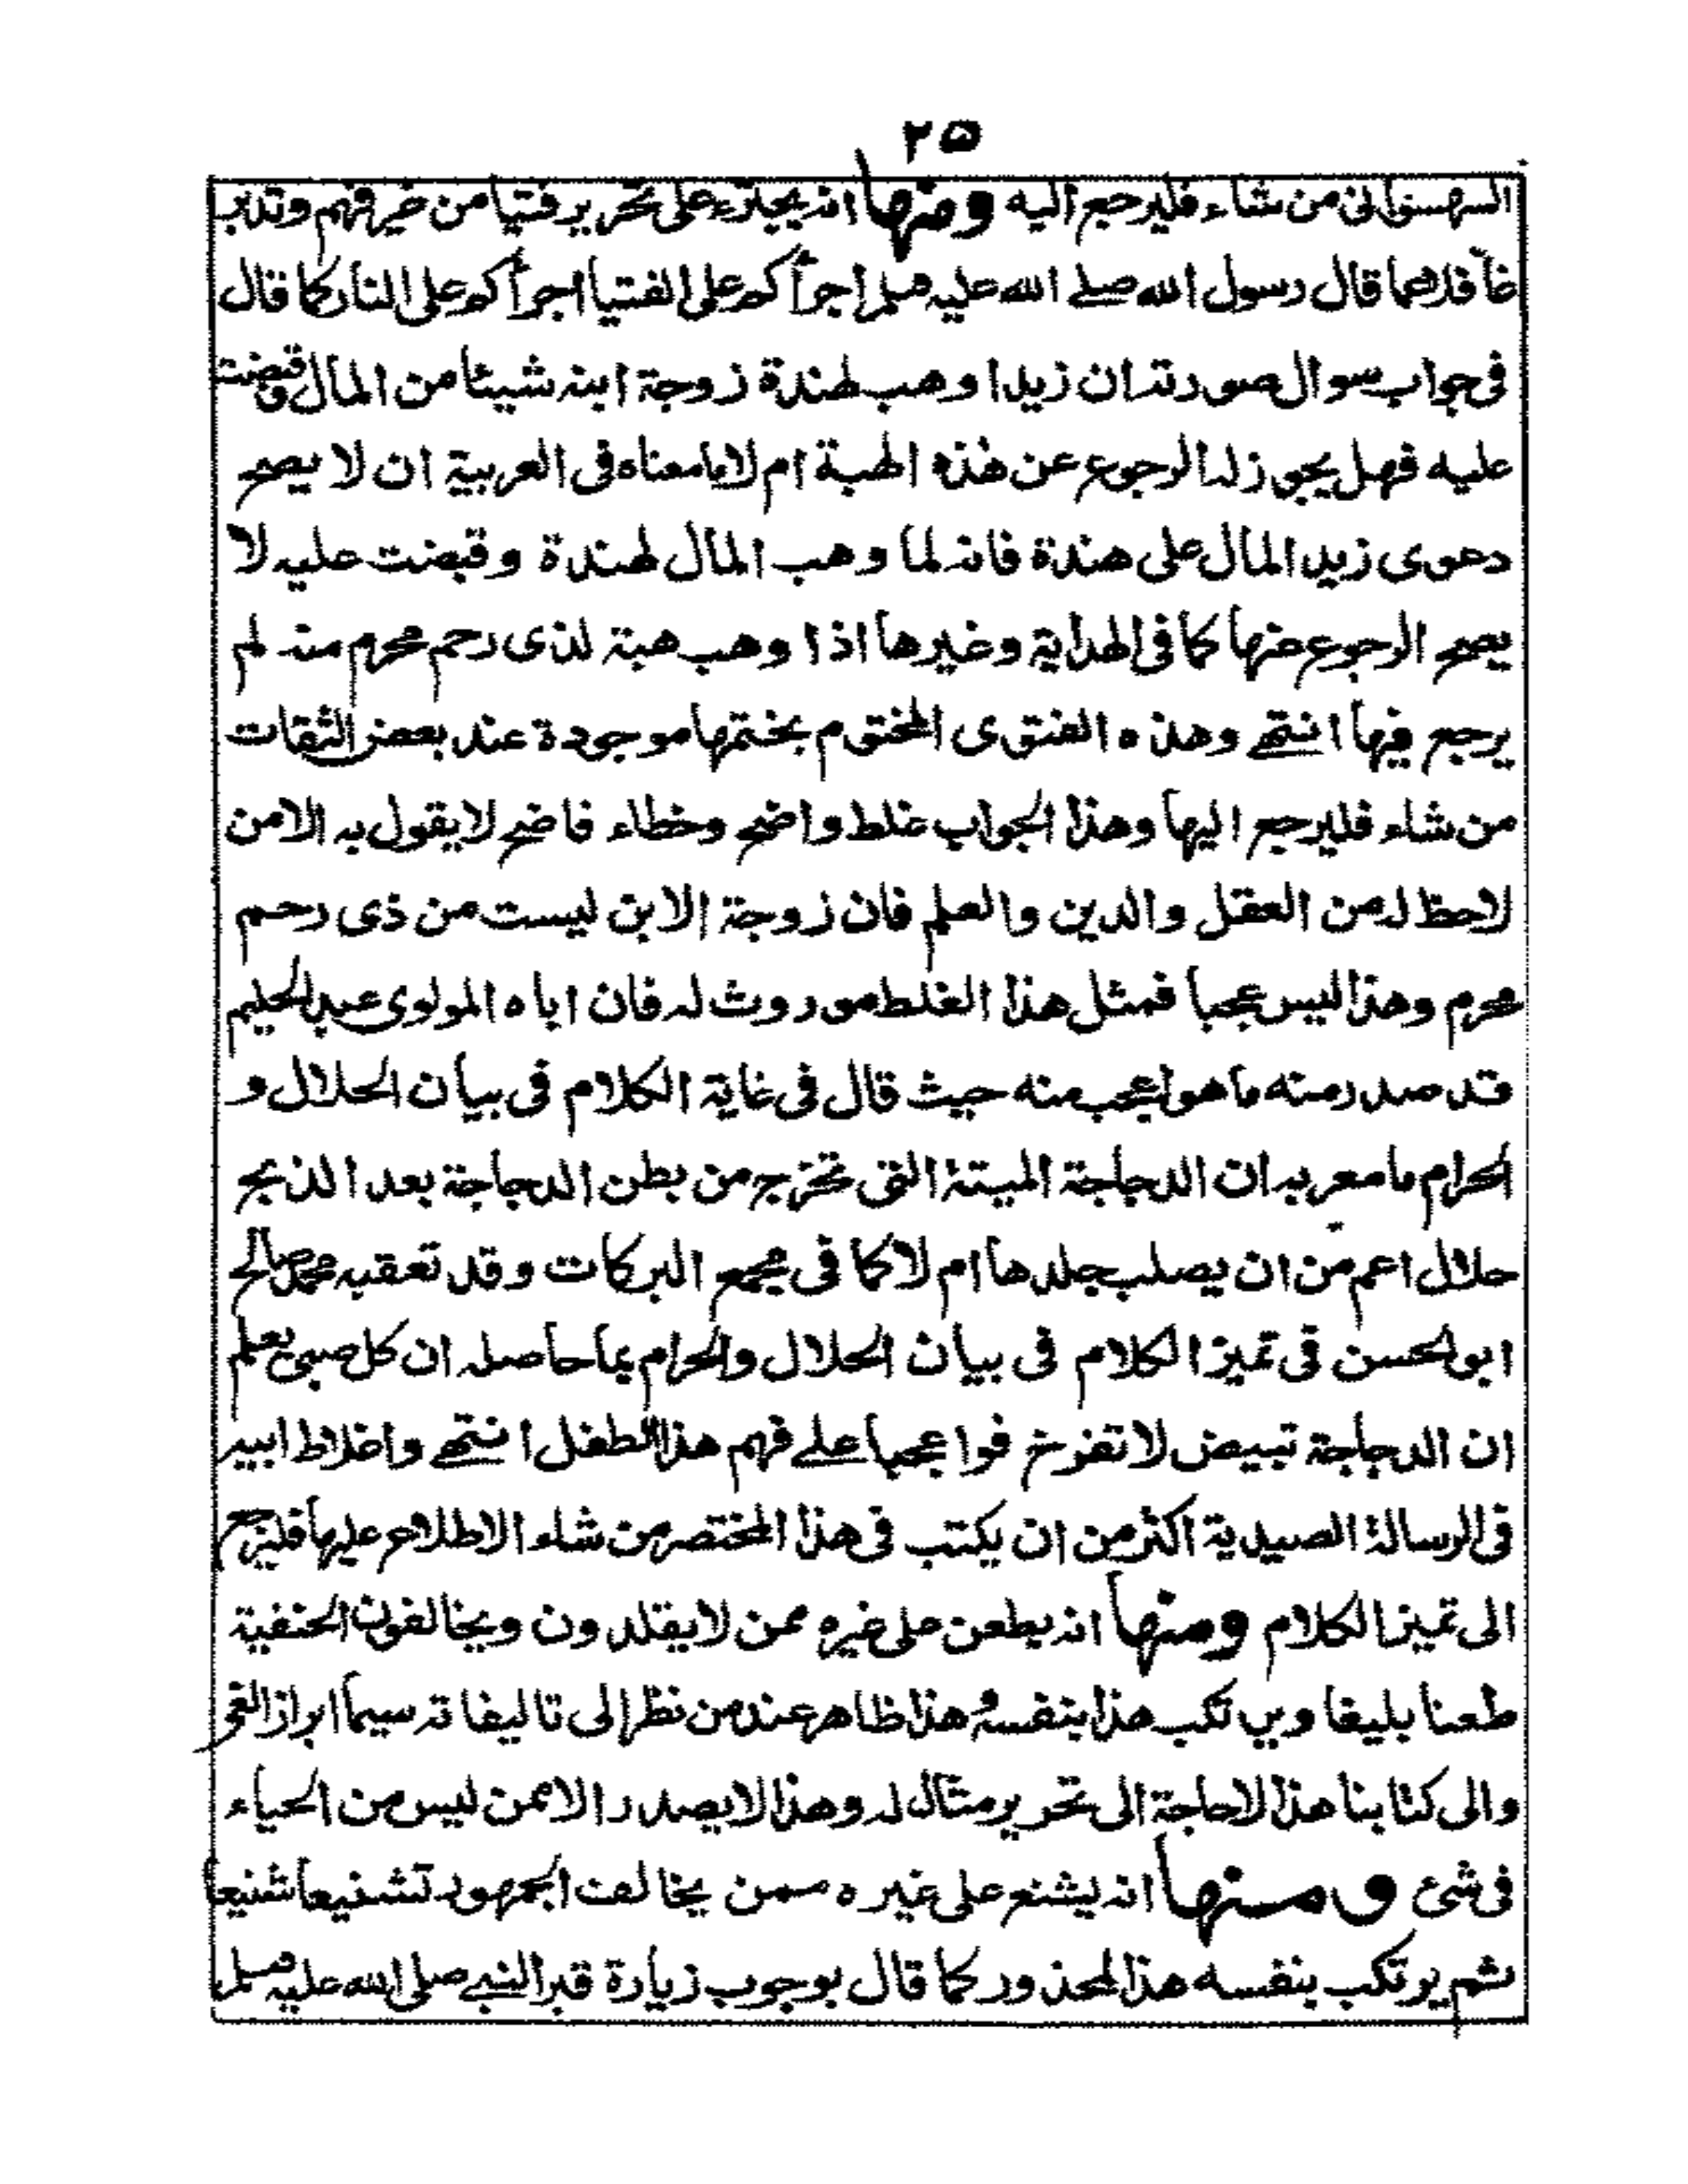 ٢٥
السهسوانى من شاء فليرجع اليه ومنها انه يجترء على تحرير فتيا من غير فهم وتدبر
غافلا عما قال رسول الله صلے الله عليه وسلم اجرأكم على الفتيا اجرأكم على النار كما قال
فى جواب سوال صورته ان زيدا وهب لهندة زوجة ابنه شيئا من المال وقبضت
عليه فهل يجوز له الرجوع عن هذه الهبة ام لا بما معناه فى العربية ان لا يصح
دعوى زيد المال على هندة فانه لما وهب المال لهندة وقبضت عليه لا
يصح الرجوع عنها كما فى الهداية وغيرها اذا وهب هبة لذى رحم محرم منه لم
يرجع فيها انتهے وهذه الفتوى المختوم بختمها موجودة عند بعض الثقات
من شاء فليرجع اليها وهذا الجواب غلط واضح وخطاء فاضح لا يقول به الا من
لا حظ له من العقل والدين والعلم فان زوجة الابن ليست من ذى رحم
محرم وهذا ليس عجبا فمثل هذا الغلط موروث له فان اباه المولوى عبد الحليم
قد صدر منه ما هو اعجب منه حيث قال فى غاية الكلام فى بيان الحلال و
الحرام ما معربه ان الدجاجة الميتة التى تخرج من بطن الدجاجة بعد الذبح
حلال اعم من ان يصلب جلدها ام لا كما فى مجمع البركات وقد تعقبه محمد صالح
ابو الحسن فى تميز الكلام فى بيان الحلال والحرام بما حاصله ان كل صبى يعلم
ان الدجاجة تبيض لا تفرخ فوا عجبا علے فهم هذا الطفل انتهے واغلاط ابيه
فى الرسالة الصيدية اكثر من ان يكتب فى هذا المختصر من شاء الاطلاع عليها فليرجع
الى تميز الكلام ومنها انه يطعن على غيره ممن لا يقلدون ويخالفون الحنفية
طعنا بليغا ويرتكب هذا بنفسه وهذا ظاهر عند من نظر الى تاليفاته سيما ابراز الغى
والى كتابنا هذا لا حاجة الى تحرير مثال له وهذا لا يصدر الا ممن ليس من الحياء
فى شئ ومنها انه يشنع على غيره ممن يخالف الجمهور تشنيعا شنيعا
ثم يرتكب بنفسه هذا المحذور كما قال بوجوب زيارة قبر النبے صلى الله عليه وسلم